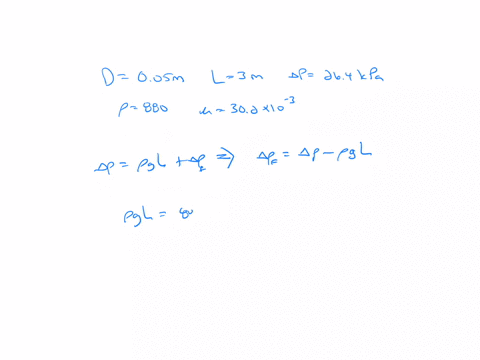 D = 0.05m L = 3 m ΔP = 26.4 kPa
ρ = 880 μ = 30.2 × 10⁻³
Δp = ρgL + Δp_F ⇒ Δp_F = Δp − ρgL
ρgL = 88